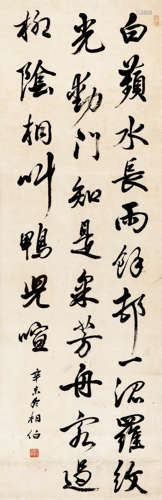 白蘋水長雨餘邨一沼羅紋
光動門知是采芳舟客過
柳陰相叫鴨兒喧
辛未冬相伯